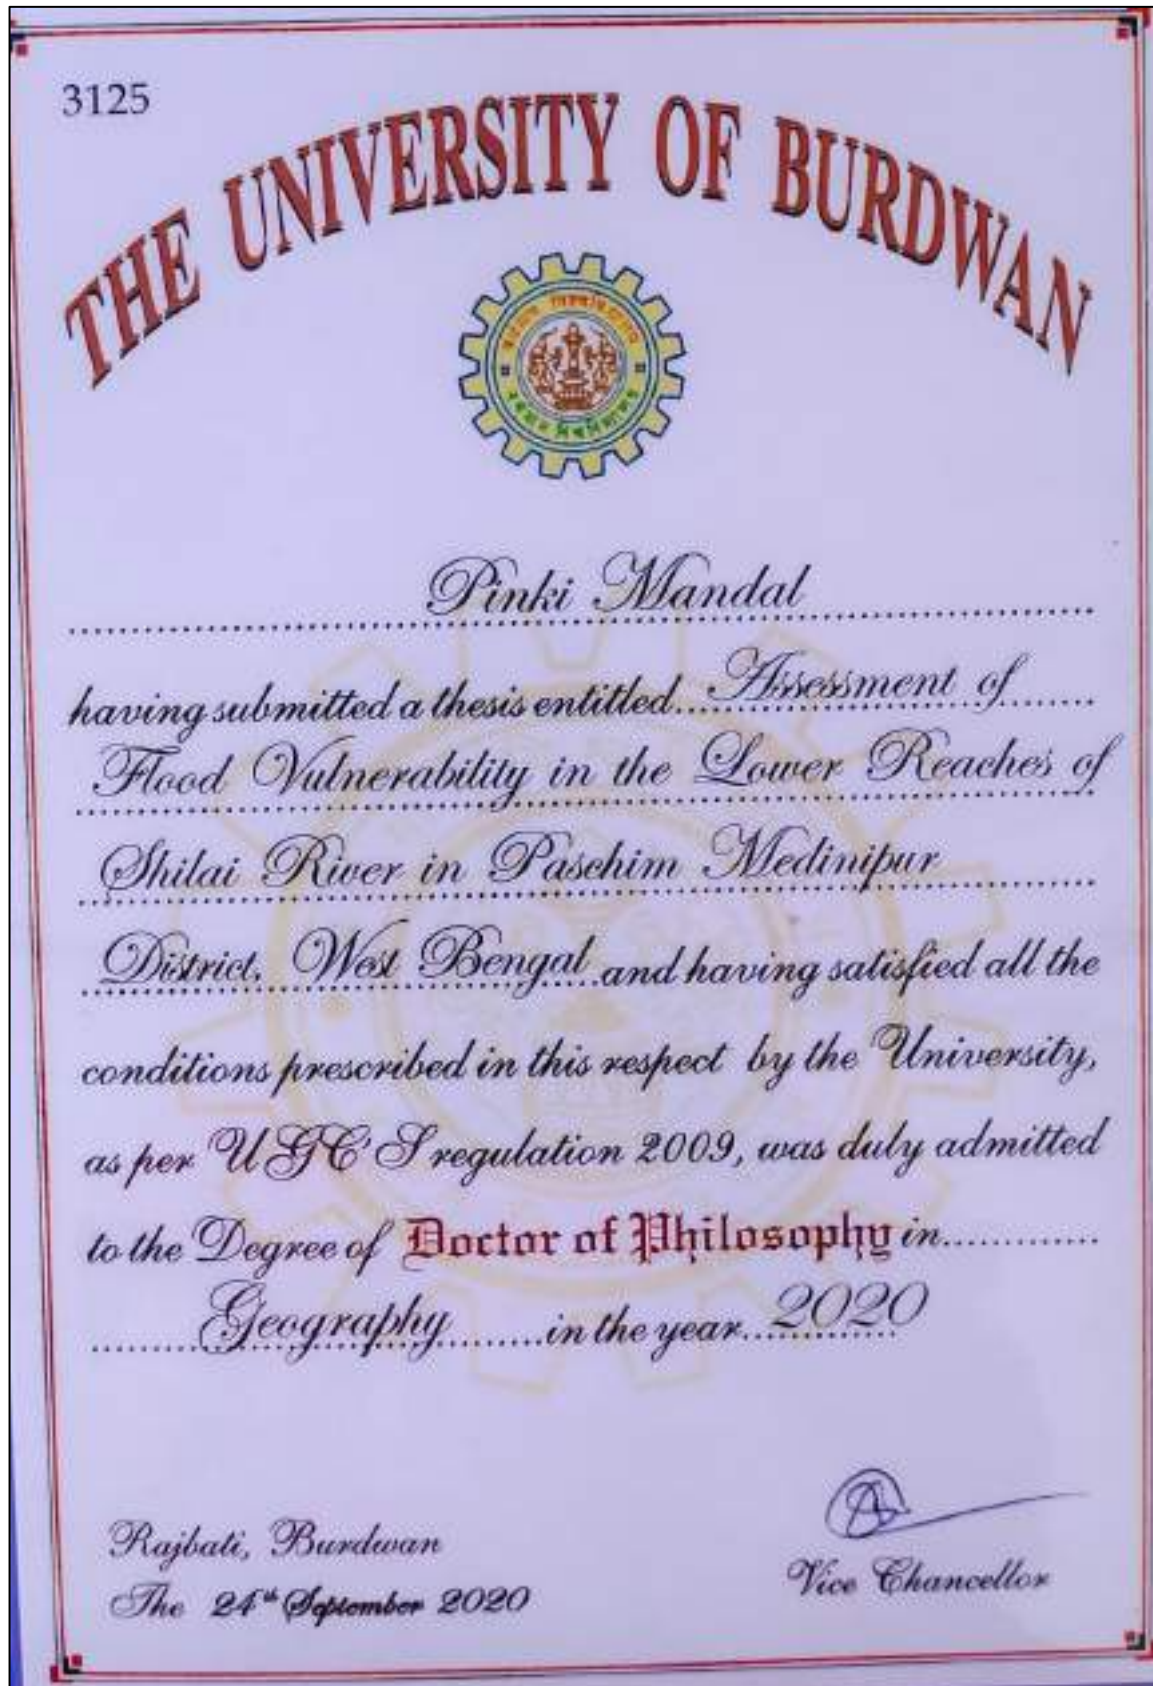 3125
THE UNIVERSITY OF BURDWAN
Pinki Mandal
having submitted a thesis entitled Assessment of
Flood Vulnerability in the Lower Reaches of
Shilai River in Paschim Medinipur
District, West Bengal and having satisfied all the
conditions prescribed in this respect by the University,
as per UGC'S regulation 2009, was duly admitted
to the Degree of Doctor of Philosophy in
Geography in the year 2020
Rajbati, Burdwan
The 24th September 2020
Vice Chancellor